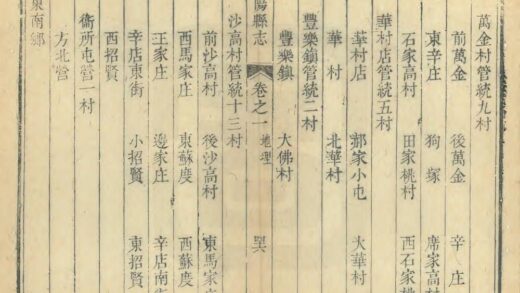 萬金村管統九村
前萬金 後萬金 辛庄
東辛庄 狗塚 席家高村
石家高村 田家桃村 西石家桃
華村店管統五村
華村店 郝家小屯 大華村
華村 北華村
豐樂鎮管統二村
豐樂鎮 大佛村
陽縣志 卷之一 地理 吴
沙高村管統十三村
前沙高村 後沙高村 東馬家
西馬家庄 東蘇度 西蘇度
汪家庄 邊家庄 辛店南
辛店東街 小招賢 東招賢
西招賢
衞所屯營一村
方北營
東南鄉